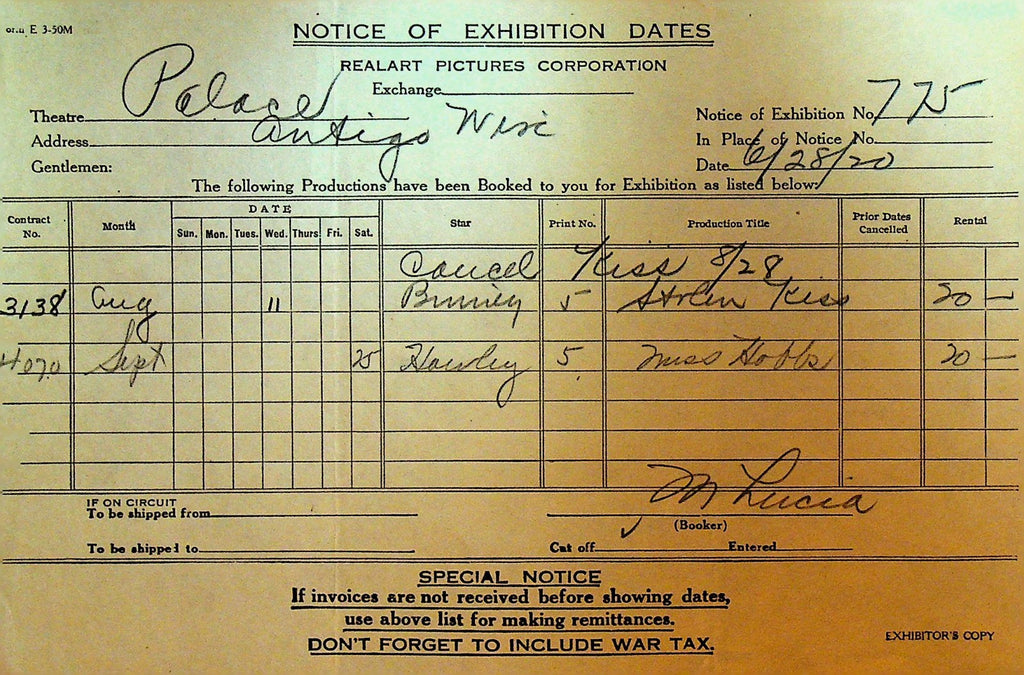 E 3-50M
NOTICE OF EXHIBITION DATES
REALART PICTURES CORPORATION
Exchange
Theatre Palace
Address Antigo Wisc
Gentlemen:
Notice of Exhibition No. 775
In Place of Notice No.
Date 6/28/20
The following Productions have been Booked to you for Exhibition as listed below:
Contract No. Month DATE Sun. Mon. Tues. Wed. Thurs Fri. Sat. Star Print No. Production Title Prior Dates Cancelled Rental
Cancel Kiss 8/28
3138 Aug 11 Binney 5 Stolen Kiss 20 —
4070 Sept 25 Hawley 5 Miss Hobbs 20 —
M Lucia
IF ON CIRCUIT
To be shipped from
(Booker)
To be shipped to
Cut off Entered
SPECIAL NOTICE
If invoices are not received before showing dates,
use above list for making remittances.
DON'T FORGET TO INCLUDE WAR TAX.
EXHIBITOR'S COPY